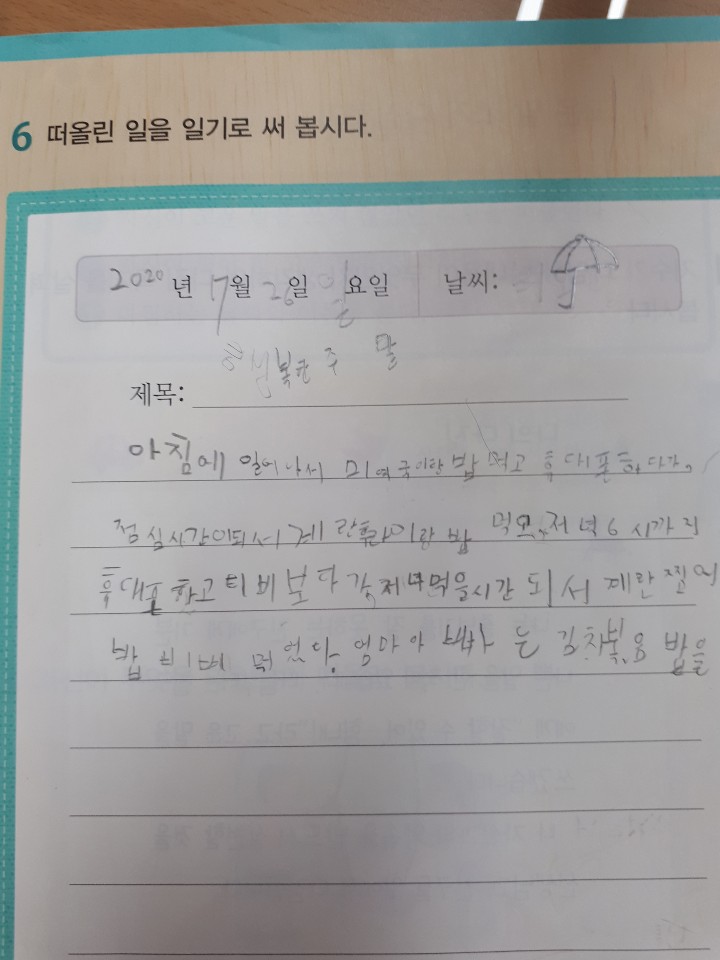 6 떠올린 일을 일기로 써 봅시다.
2020 년 7월 26일 일요일 날씨:
행복한 주말
제목:
아침에 일어나서 미역국이랑 밥 먹고 후대폰 하다가
점심시간이되서 계란후라이랑 밥 먹으 저녁 6시까지
후대폰 하고 티비보다가 저녁먹을시간 되서 계란찜에
밥 비벼 먹었다. 엄마아 빠는 김치볶음밥을